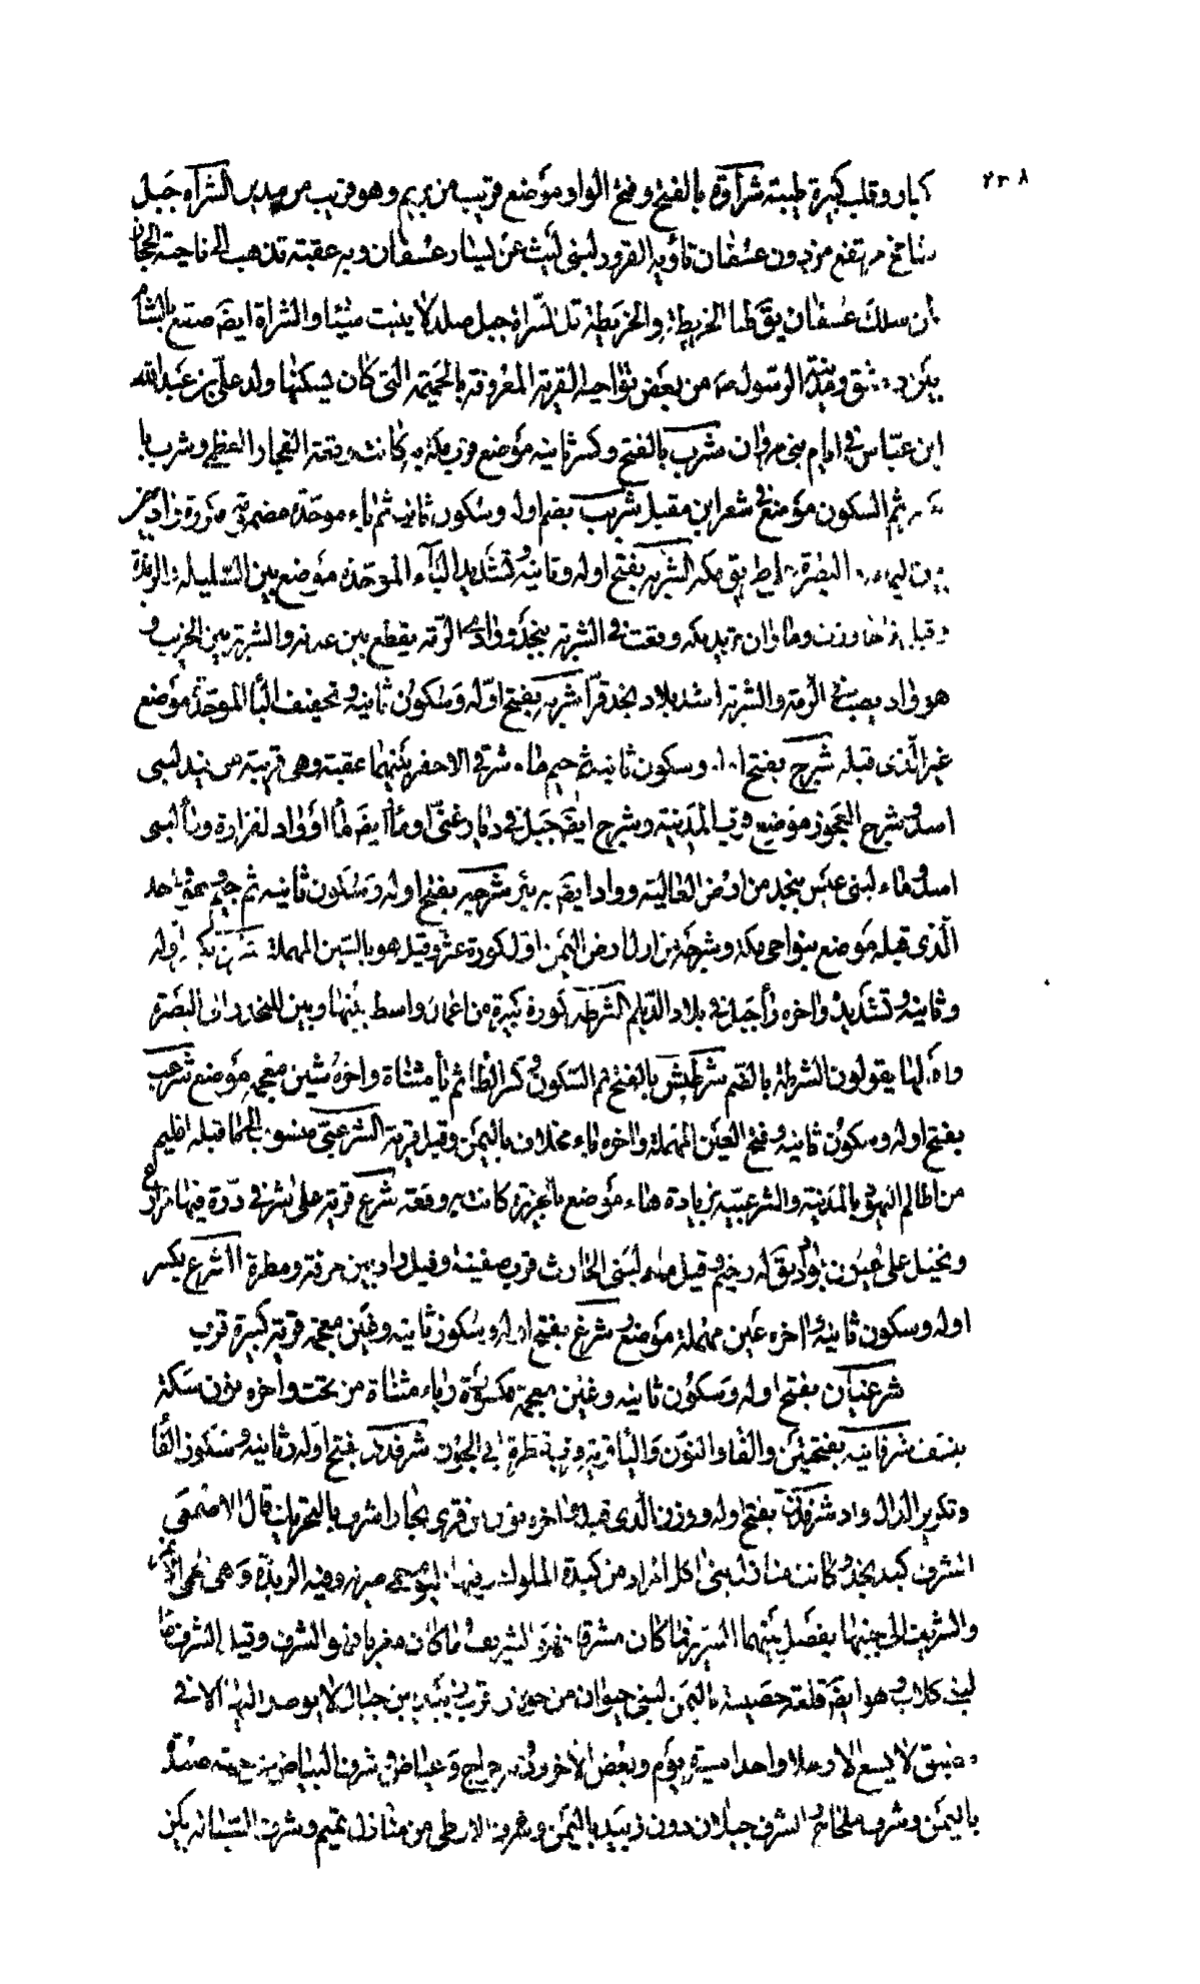 ٢٣٨
كبار وقلب كبيرة طيبته شراوة بالفتح وفتح الواو موضع قريب من تريم وهو قريب من مدين الشراه جبل
شامخ مرتفع من دون عسفان تأويه القرود لبنى ليث عن يسار عسفان وبه عقبته تذهب الى ناحيته الحجاز
لمن سلك عسفان يقَ لها الخريطة والخريطة تلى الشراة جبل صلد لا ينبت شيئا والشراة ايضَ صقع بالشام
بين دمشق ومدينة الرسول صَ من بعض نواحيه القرية المعروفة بالحميمة التى كان يسكنها ولد على بن عبد الله
ابن عباس فى ايام بنى مروان شرب بالفتح وكسر ثانيه موضع قرب مكة به كانت وقعة الفجار العظمى وشرب با
ثم السكون موضع فى شعر ابن مقبل شربب بضم اوله وسكون ثانيه ثم باء موحدة مضمومة مكررة واد فى
البصرة الى طريق مكه الشربه بفتح اوله وثانيه وتشديد الباء الموحدة موضع بين السليله والربذة
وقيل اذا جاوزت وماوان تريد مكه وقعت فى الشربه بنجد ووادى الرمه يقطع بين عدنه والشربه بين الخرب و
هو واد يصب فى الرمه والشربه اشد بلاد نجد قرا شربه بفتح اوله وسكون ثانيه وتخفيف البا الموحدة موضع
غير الذى قبله شرج بفتح اوله وسكون ثانيه ثم جيم ماء شرقى الاحفر بينهما عقبته وهى قريبة من فيد لبنى
اسد وشرج العجوز موضع قرب المدينة وشرج ايضَ جبل فى ديار غنى او ماء ايضَ ماء او واد لفزارة وماء لبنى
اسد وماء لبنى عبس بنجد من ارض العاليه وواد ايضَ به بئر شرجه بفتح اوله وسكون ثانيه ثم جيم
الذى قبله موضع بنواحى مكة وشرجة من اوائل ارض اليمن اول كورة عثر وقيل هو بالسين المهملة بكسر اوله
وثانيه وتشديده واخره زا جبل فى بلاد الديلم الشرطه كورة كبيرة من اعمال واسط بينها وبين البصرة
واهلها يقولون الشرطة بالضم شرطيش بالفتح ثم السكون وكسر الطاء ثم يا مثناة واخره شين معجمه موضع شرعب
بفتح اوله وسكون ثانيه وفتح العين المهملة واخره باء مخلاف باليمن وقيل قرية الشرعبى منسوب الى ما قبله اطم
من اطام اليهود بالمدينة والشرعبية بزيادة هاء موضع بالجزيرة كانت به وقعة شرع قرية على شرفى ذرة فيها مزارع
ونخيل على عيون بواد يقَ له رخيم وقيل ماء لبنى الحارث قرب صفينه وقيل واد بين حرفة ومطرة الشرع بكسر
اوله وسكون ثانيه واخره عين مهملة موضع شرغ بفتح اوله وسكون ثانيه وغين معجمة قرية كبيرة قرب
شرغيان بفتح اوله وسكون ثانيه وغين معجمة مكسورة وياء مثناة من تحت واخره نون سكة
بنسف شرفانيه بفتحتين والفا والنون واليا قرية قرب قنطرة ابى الجون شرفدد بفتح اوله وثانيه وسكون الفا
وتكرير الدال واد شرفدن بفتح اوله ووزن الذى قبله واخره نون من قرى بخارا شرف بالتحريك قال الاصمعى
الشرف كبد نجد وكانت منازل بنى اكل المرار من كندة الملوك وفيها اليوم حمى ضريه وفيه الربذة وهى الحمى الايمن
والشريف الى جنبها يفصل بينهما التسرير فما كان مشرقا فهو الشريف وما كان مغربا فهو الشرف وقيل الشرف ماء
لبنى كلاب وهو ايضَ قلعة حصينة باليمن لبنى حيوان من خولان قرب زبيد بين جبال لا يوصل اليها الا فى
مضيق لا يسع الا رجلا واحدا مسيرة يوم وبعض الاخر ودونه حراج وغياض وشرف البياض من جهة صنعا
باليمن وشرف قلحاح والشرف جبلان دون زبيد باليمن وشرف الارطى من منازل تميم وشرف السيالة بين